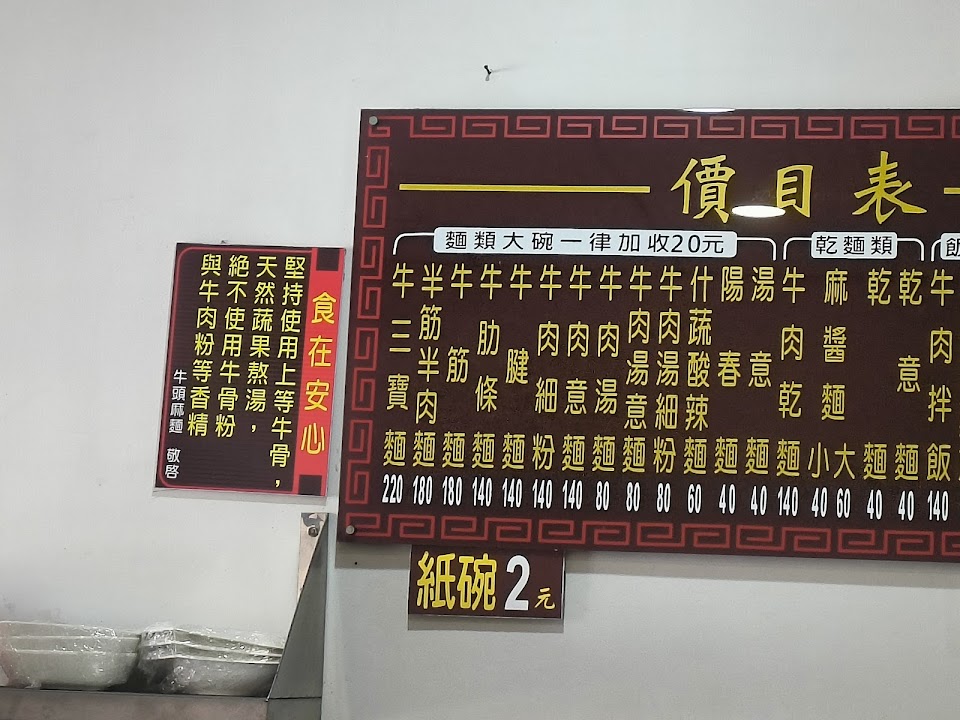 價目表
麵類大碗一律加收20元
牛三寶麵 220
半筋半肉麵 180
牛筋麵 180
牛肋條麵 140
牛腱麵 140
牛肉細粉 140
牛肉意麵 140
牛肉湯麵 80
牛肉湯意麵 80
牛肉湯細粉 80
什蔬酸辣麵 60
陽春麵 40
湯意麵 40
乾麵類
牛肉乾麵 140
麻醬麵 小 40 大 60
乾麵 40
乾意麵 40
飯
牛肉拌飯 140
食在安心
堅持使用上等牛骨，
天然蔬果熬湯，
絕不使用牛骨粉
與牛肉粉等香精
牛頭麻麵 敬啓
紙碗2元